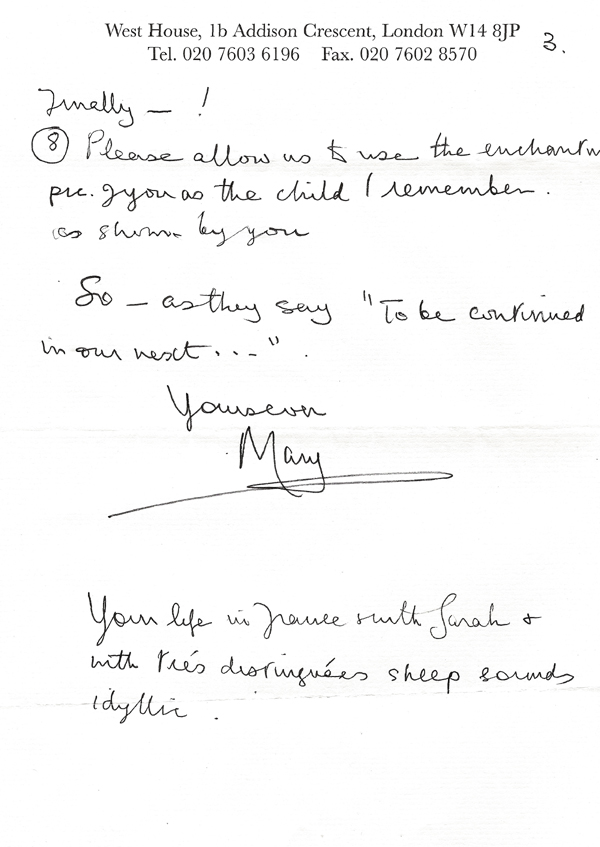 West House, 1b Addison Crescent, London W14 8JP
Tel. 020 7603 6196 Fax. 020 7602 8570
3.
Finally — !
⑧ Please allow us to use the enchantin
pic. of you as the child I remember.
as shown by you
So — as they say "To be continued
in our next . . . ".
Yours ever
Mary
Your life in France with Sarah +
with très distinguées sheep sounds
idyllic .